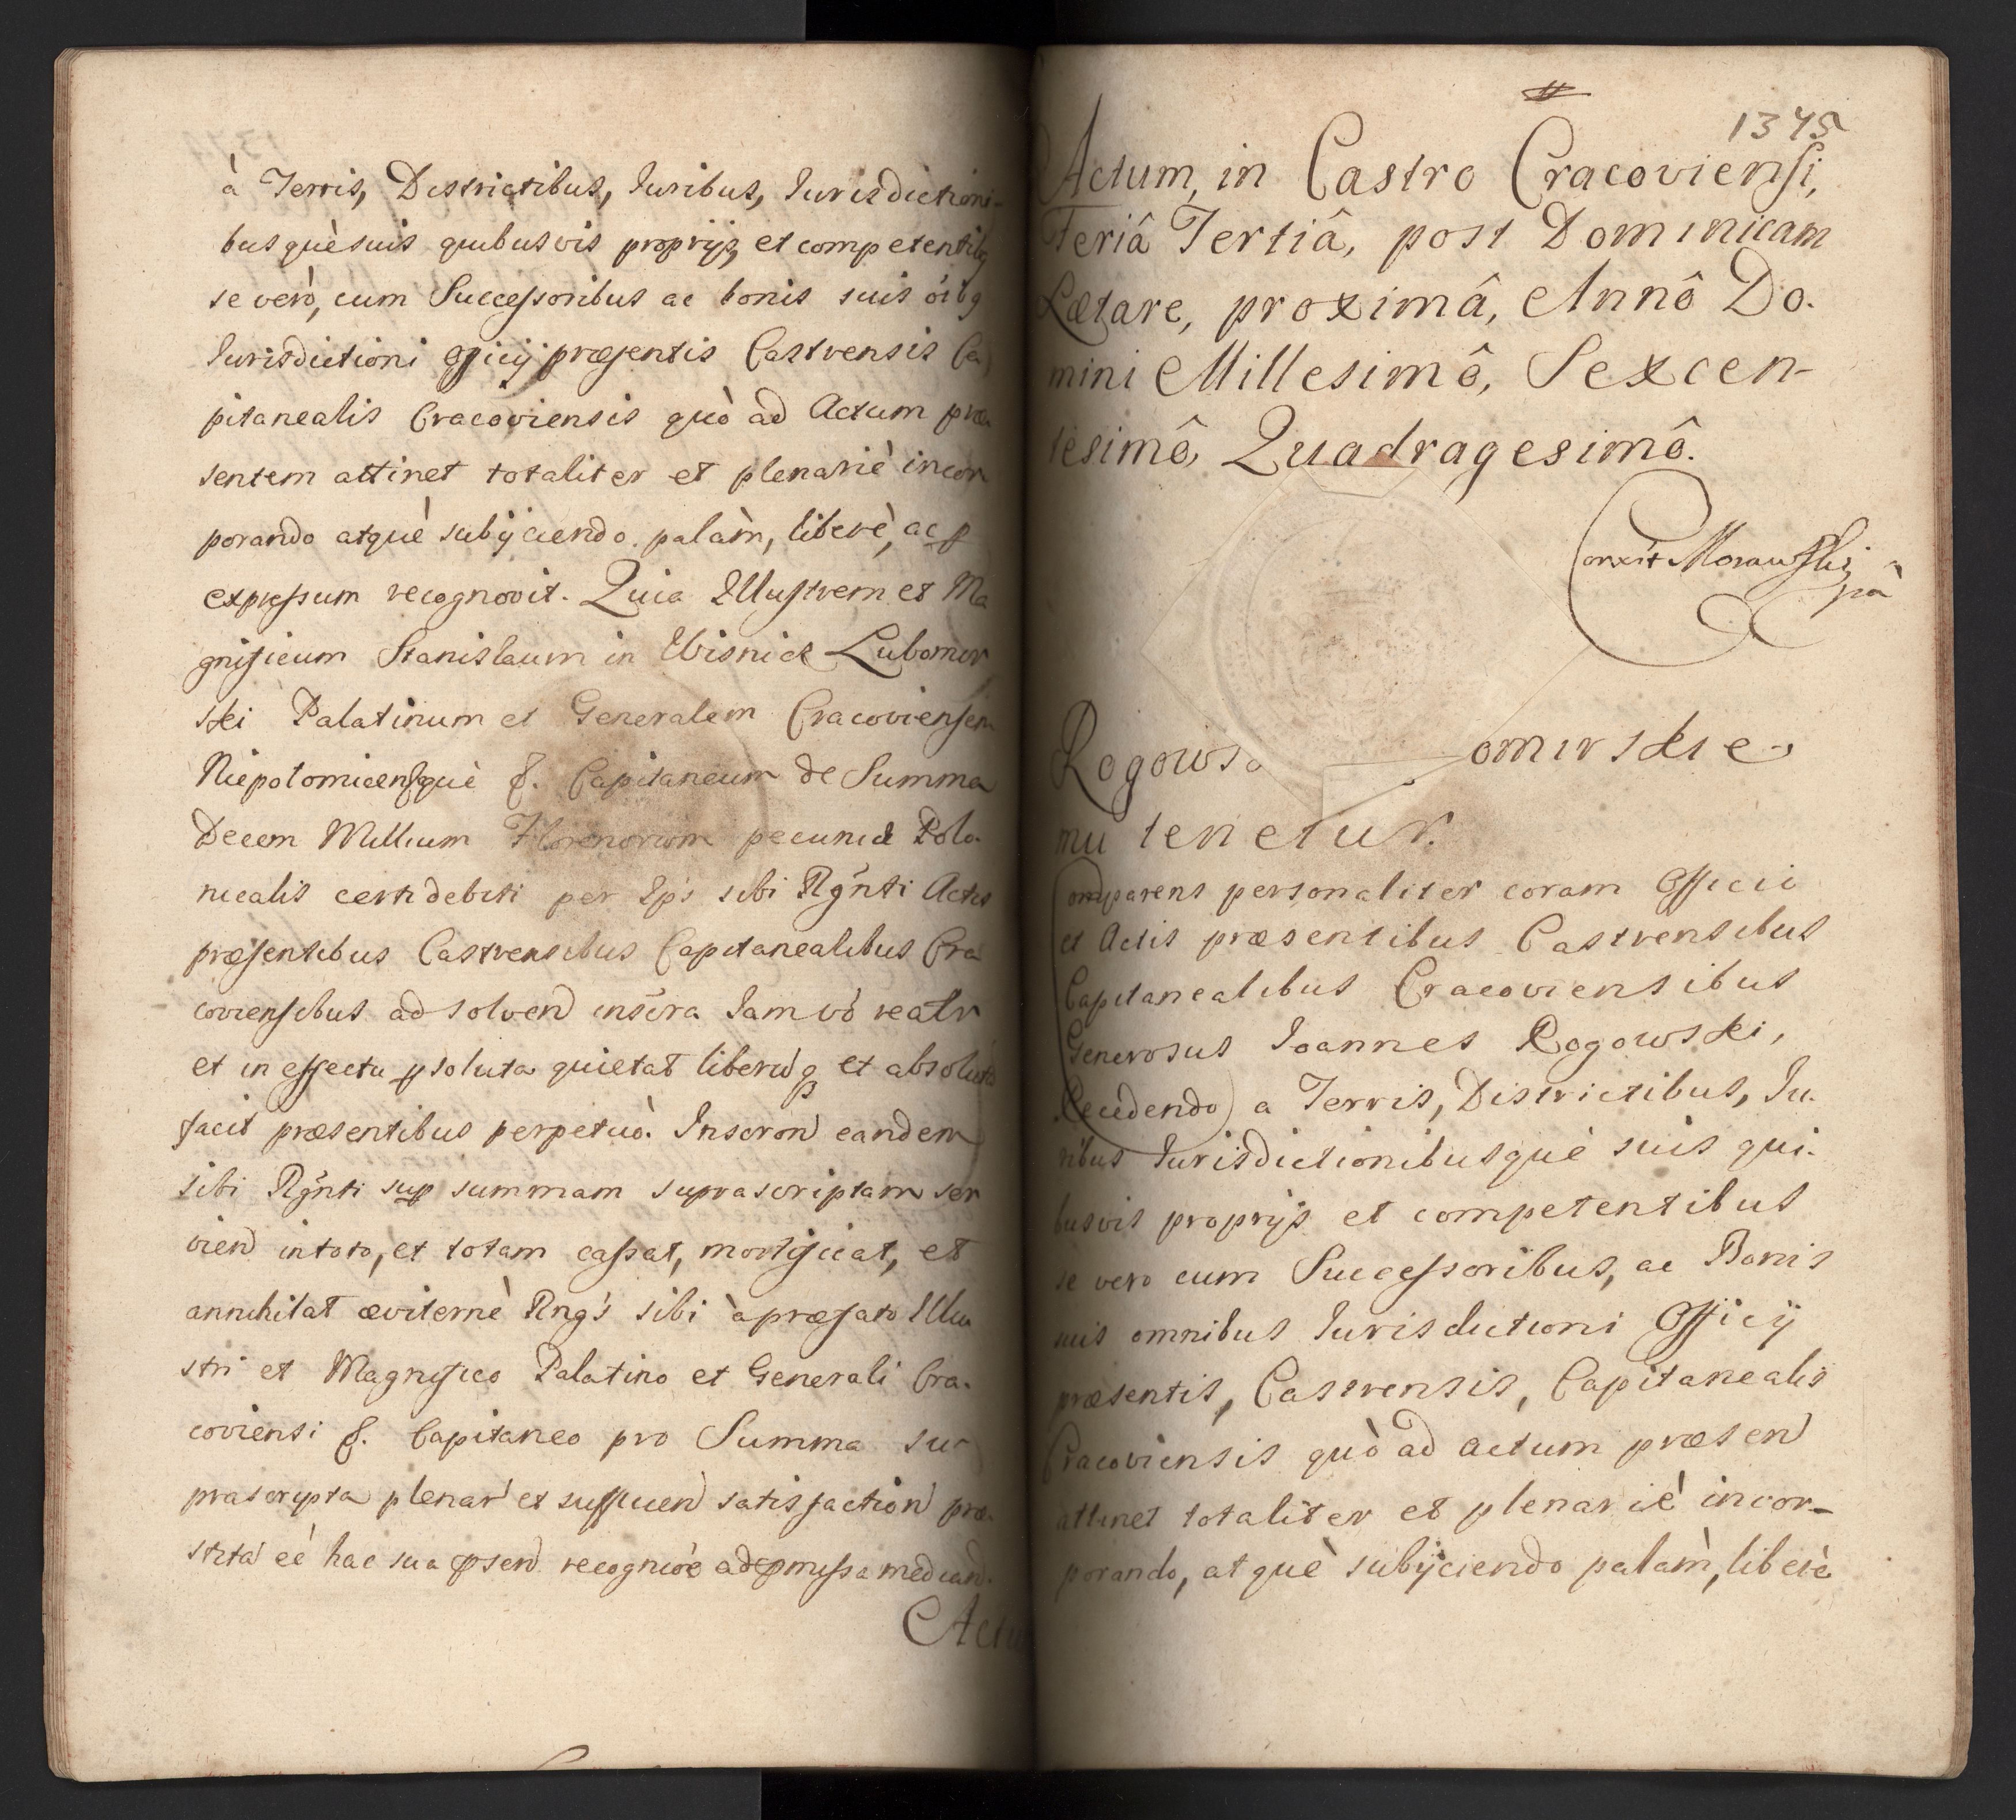 à Terris, Districtibus, Iuribus, Iurisdictioni-
busquè suis quibusvis proprijs, et competentibq
se verò, cum Successoribus ac bonis suis oibq
Iurisdictioni Officij præsentis Castrensis Ca
pitanealis Cracoviensis quò ad Actum præ
sentem attinet totaliter et plenariè incor
porando atquè subijciendo. palàm, liberè, ac p
expressum recognovit. Quia Illustrem et Ma
gnificum Stanislaum in Wisnicz Lubomir
ski Palatinum et Generalem Cracoviensem
Niepolomicensquè &. Capitaneum de Summa
Decem Millium Florenorum pecuniæ Polo-
nicalis certi debiti per Ips sibi Rgnti Actis
præsentibus Castrensibus Capitanealibus Cra
coviensibus ad solvend inscra Iam vò realr
et in effectu psoluta quietat liberuq et absolut
facit præsentibus perpetuò. Inscron eandem
sibi Rgnti sup summam suprascriptam ser
vien in toto, et totam cassat, mortificat, et
annihilat æviternè Rngs sibi à præfato Illu
stri et Magnifico Palatino et Generali Cra-
coviensi &. Capitaneo pro Summa su-
prascripta plenar et sufficien satisfaction præ-
stita eè hac sua psen recognioè ad pmissa median.
Actu
1345
Actum, in Castro Cracoviensi,
Feriâ Tertiâ, post Dominicam
Lætare, proximâ, Annô Do-
mini Millesimô, Sexcen-
tesimô, Quadragesimô.
Correxit Morawski
Rogows omirskie
mu tenetur.
Comparens personaliter coram Officii
et Actis præsentibus Castrensibus
Capitanealibus Cracoviensibus
Generosus Ioannes Rogowski,
Recedendo a Terris, Districtibus, Iu-
ribus Iurisdictionibusquè suis qui-
busvis proprijs et competentibus
se vero cum Successoribus, ac Bonis
suis omnibus Iurisdictioni Officij
præsentis, Castrensis, Capitanealis
Cracoviensis quò ad actum præsen
attinet totaliter et plenariè incor-
porando, atquè subijciendo palàm, liberè